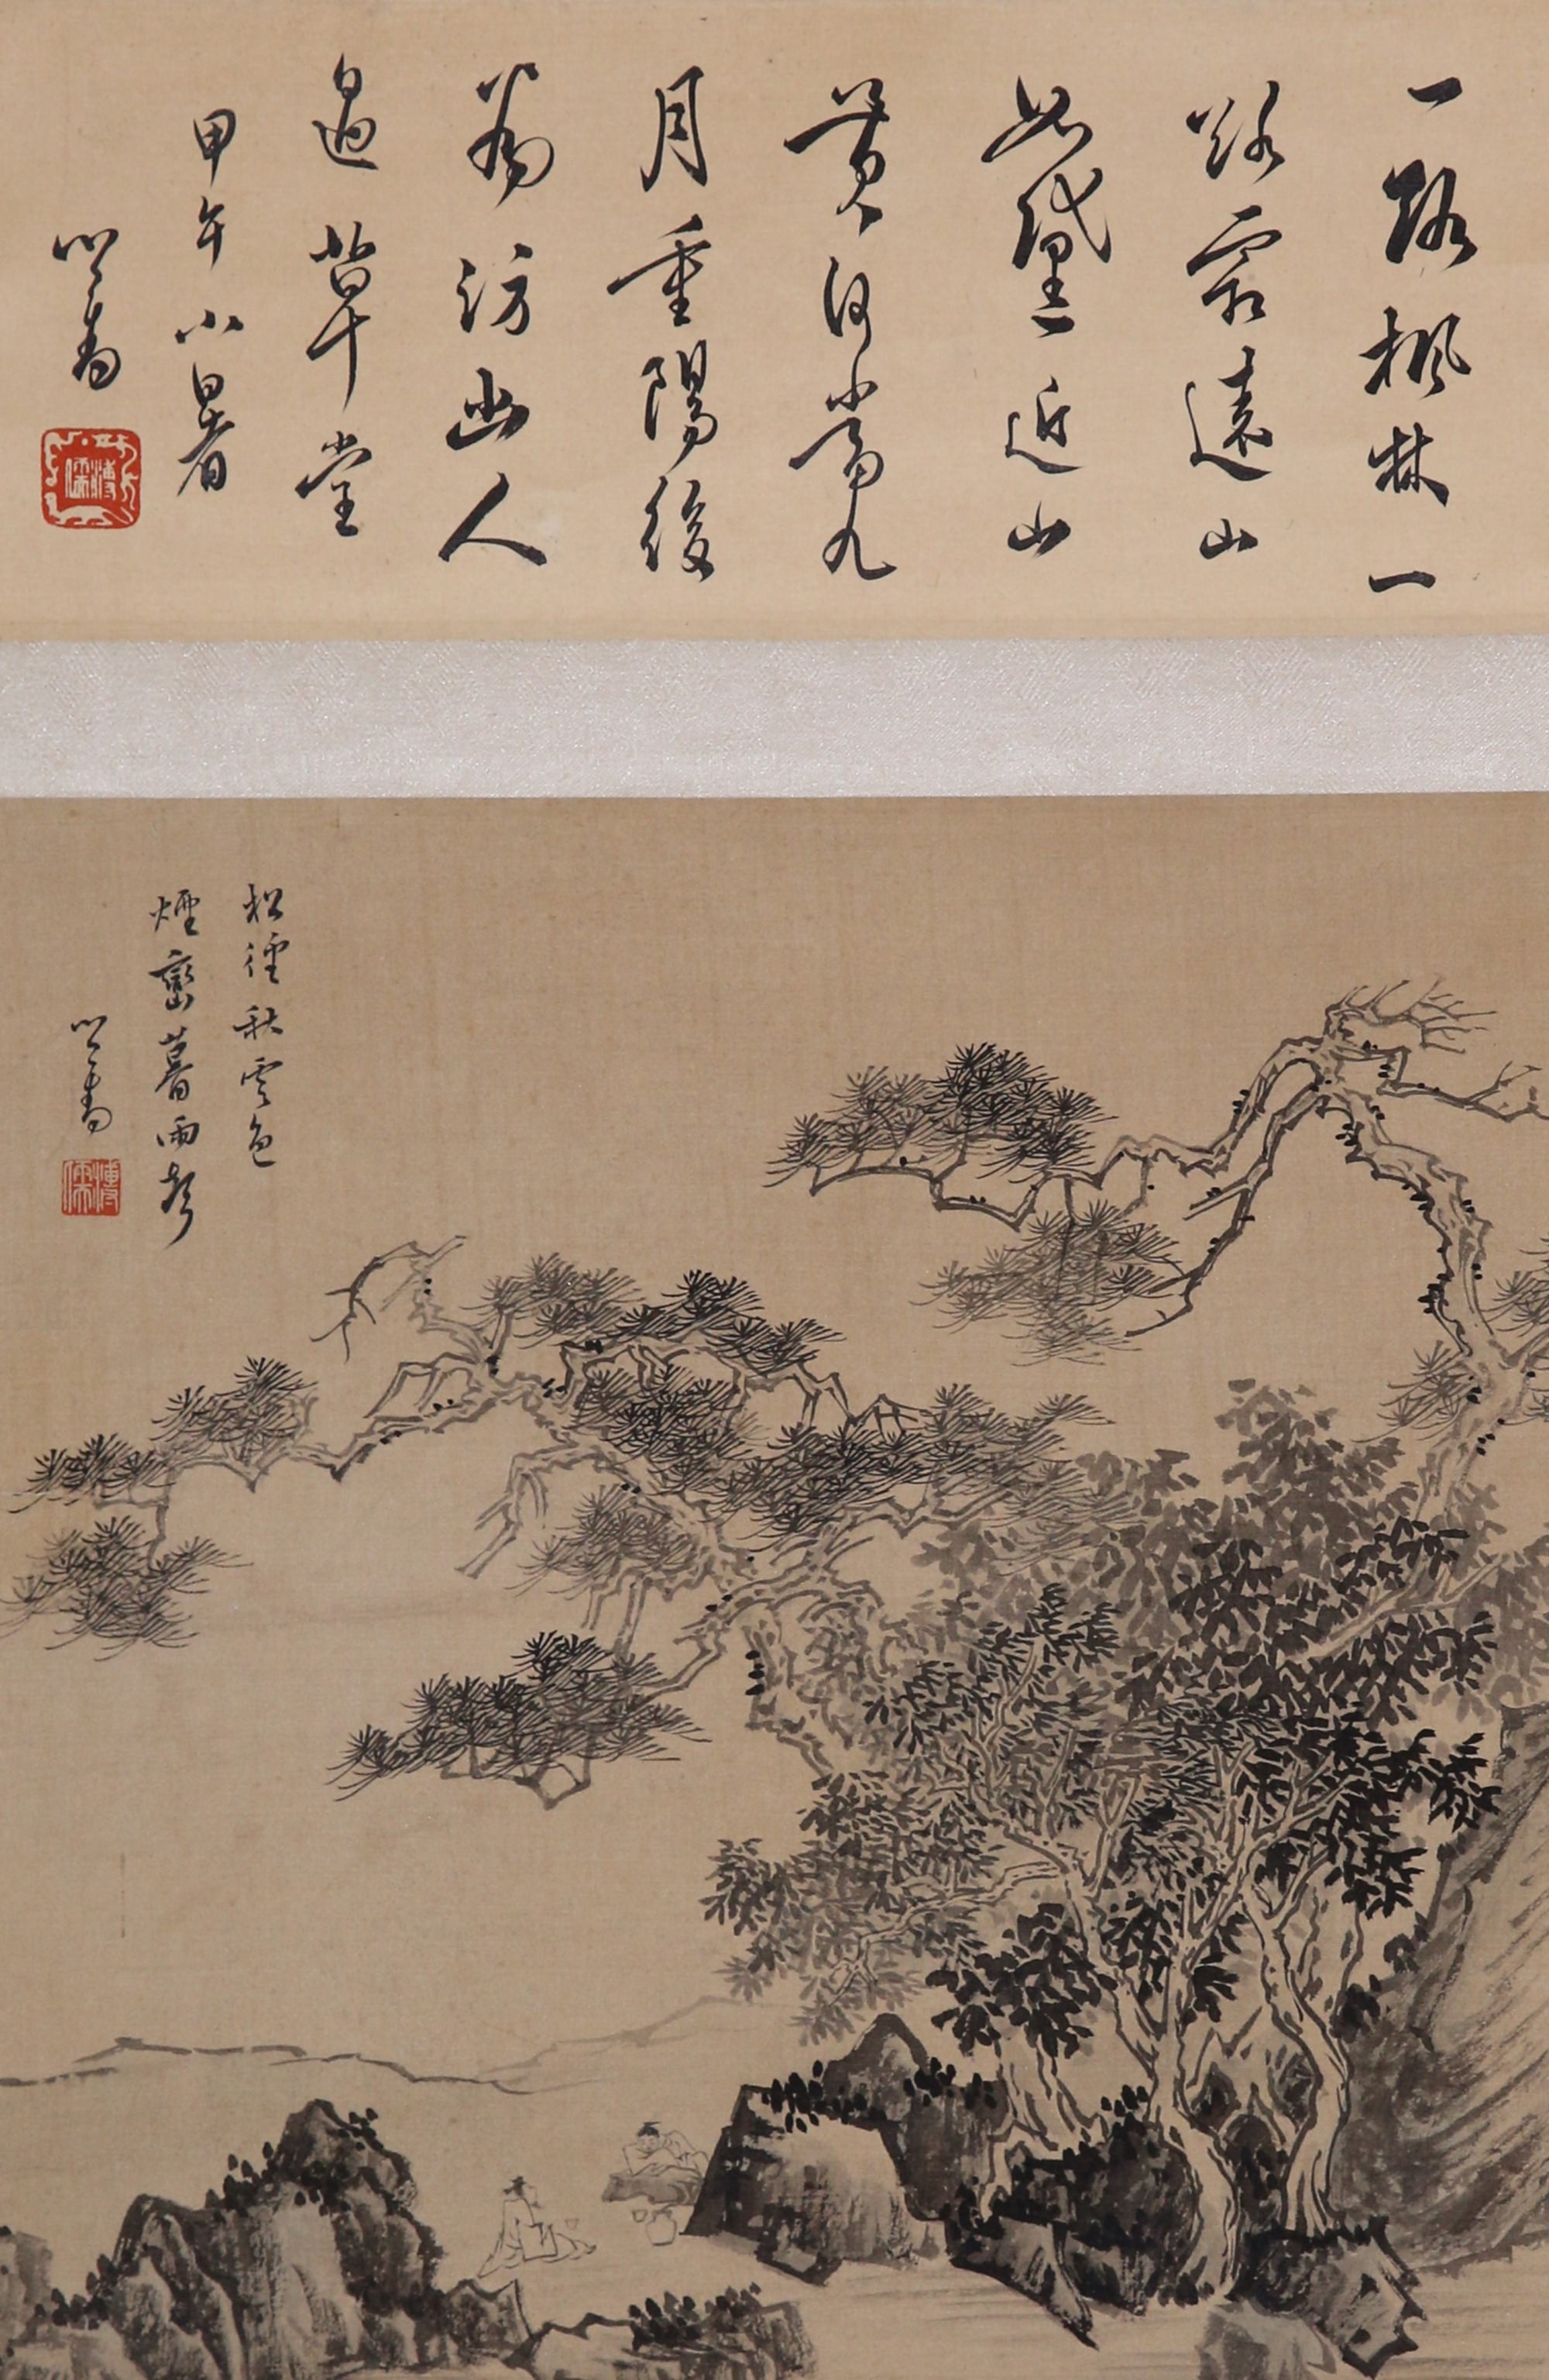 一路楓林一
路霜遠山
如黛近山
黃何當九
月重陽後
為訪幽人
過草堂
甲午小暑
心畬
溥儒
松徑秋雲色
煙巒暮雨聲
心畬
溥儒